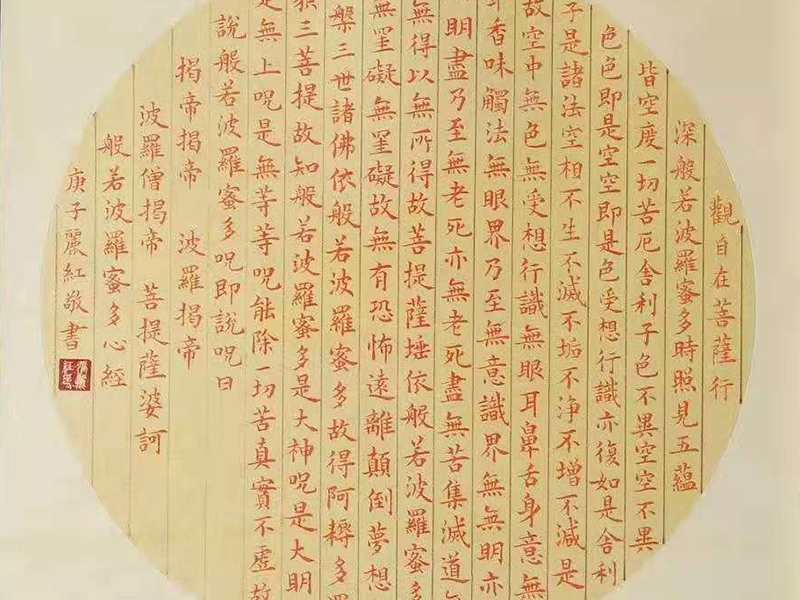 觀自在菩薩行
深般若波羅蜜多時照見五蘊
皆空度一切苦厄舍利子色不異空空不異
色色即是空空即是色受想行識亦復如是舍利
子是諸法空相不生不滅不垢不净不增不減是
故空中無色無受想行識無眼耳鼻舌身意無
香味觸法無眼界乃至無意識界無無明亦
明盡乃至無老死亦無老死盡無苦集滅道
無得以無所得故菩提薩埵依般若波羅蜜多
無罣礙無罣礙故無有恐怖遠離顛倒夢想
槃三世諸佛依般若波羅蜜多故得阿耨多
三菩提故知般若波羅蜜多是大神呪是大明
是無上呪是無等等呪能除一切苦真實不虛故
說般若波羅蜜多呪即說呪曰
揭帝揭帝 波羅揭帝
波羅僧揭帝 菩提薩婆訶
般若波羅蜜多心經
庚子麗紅敬書